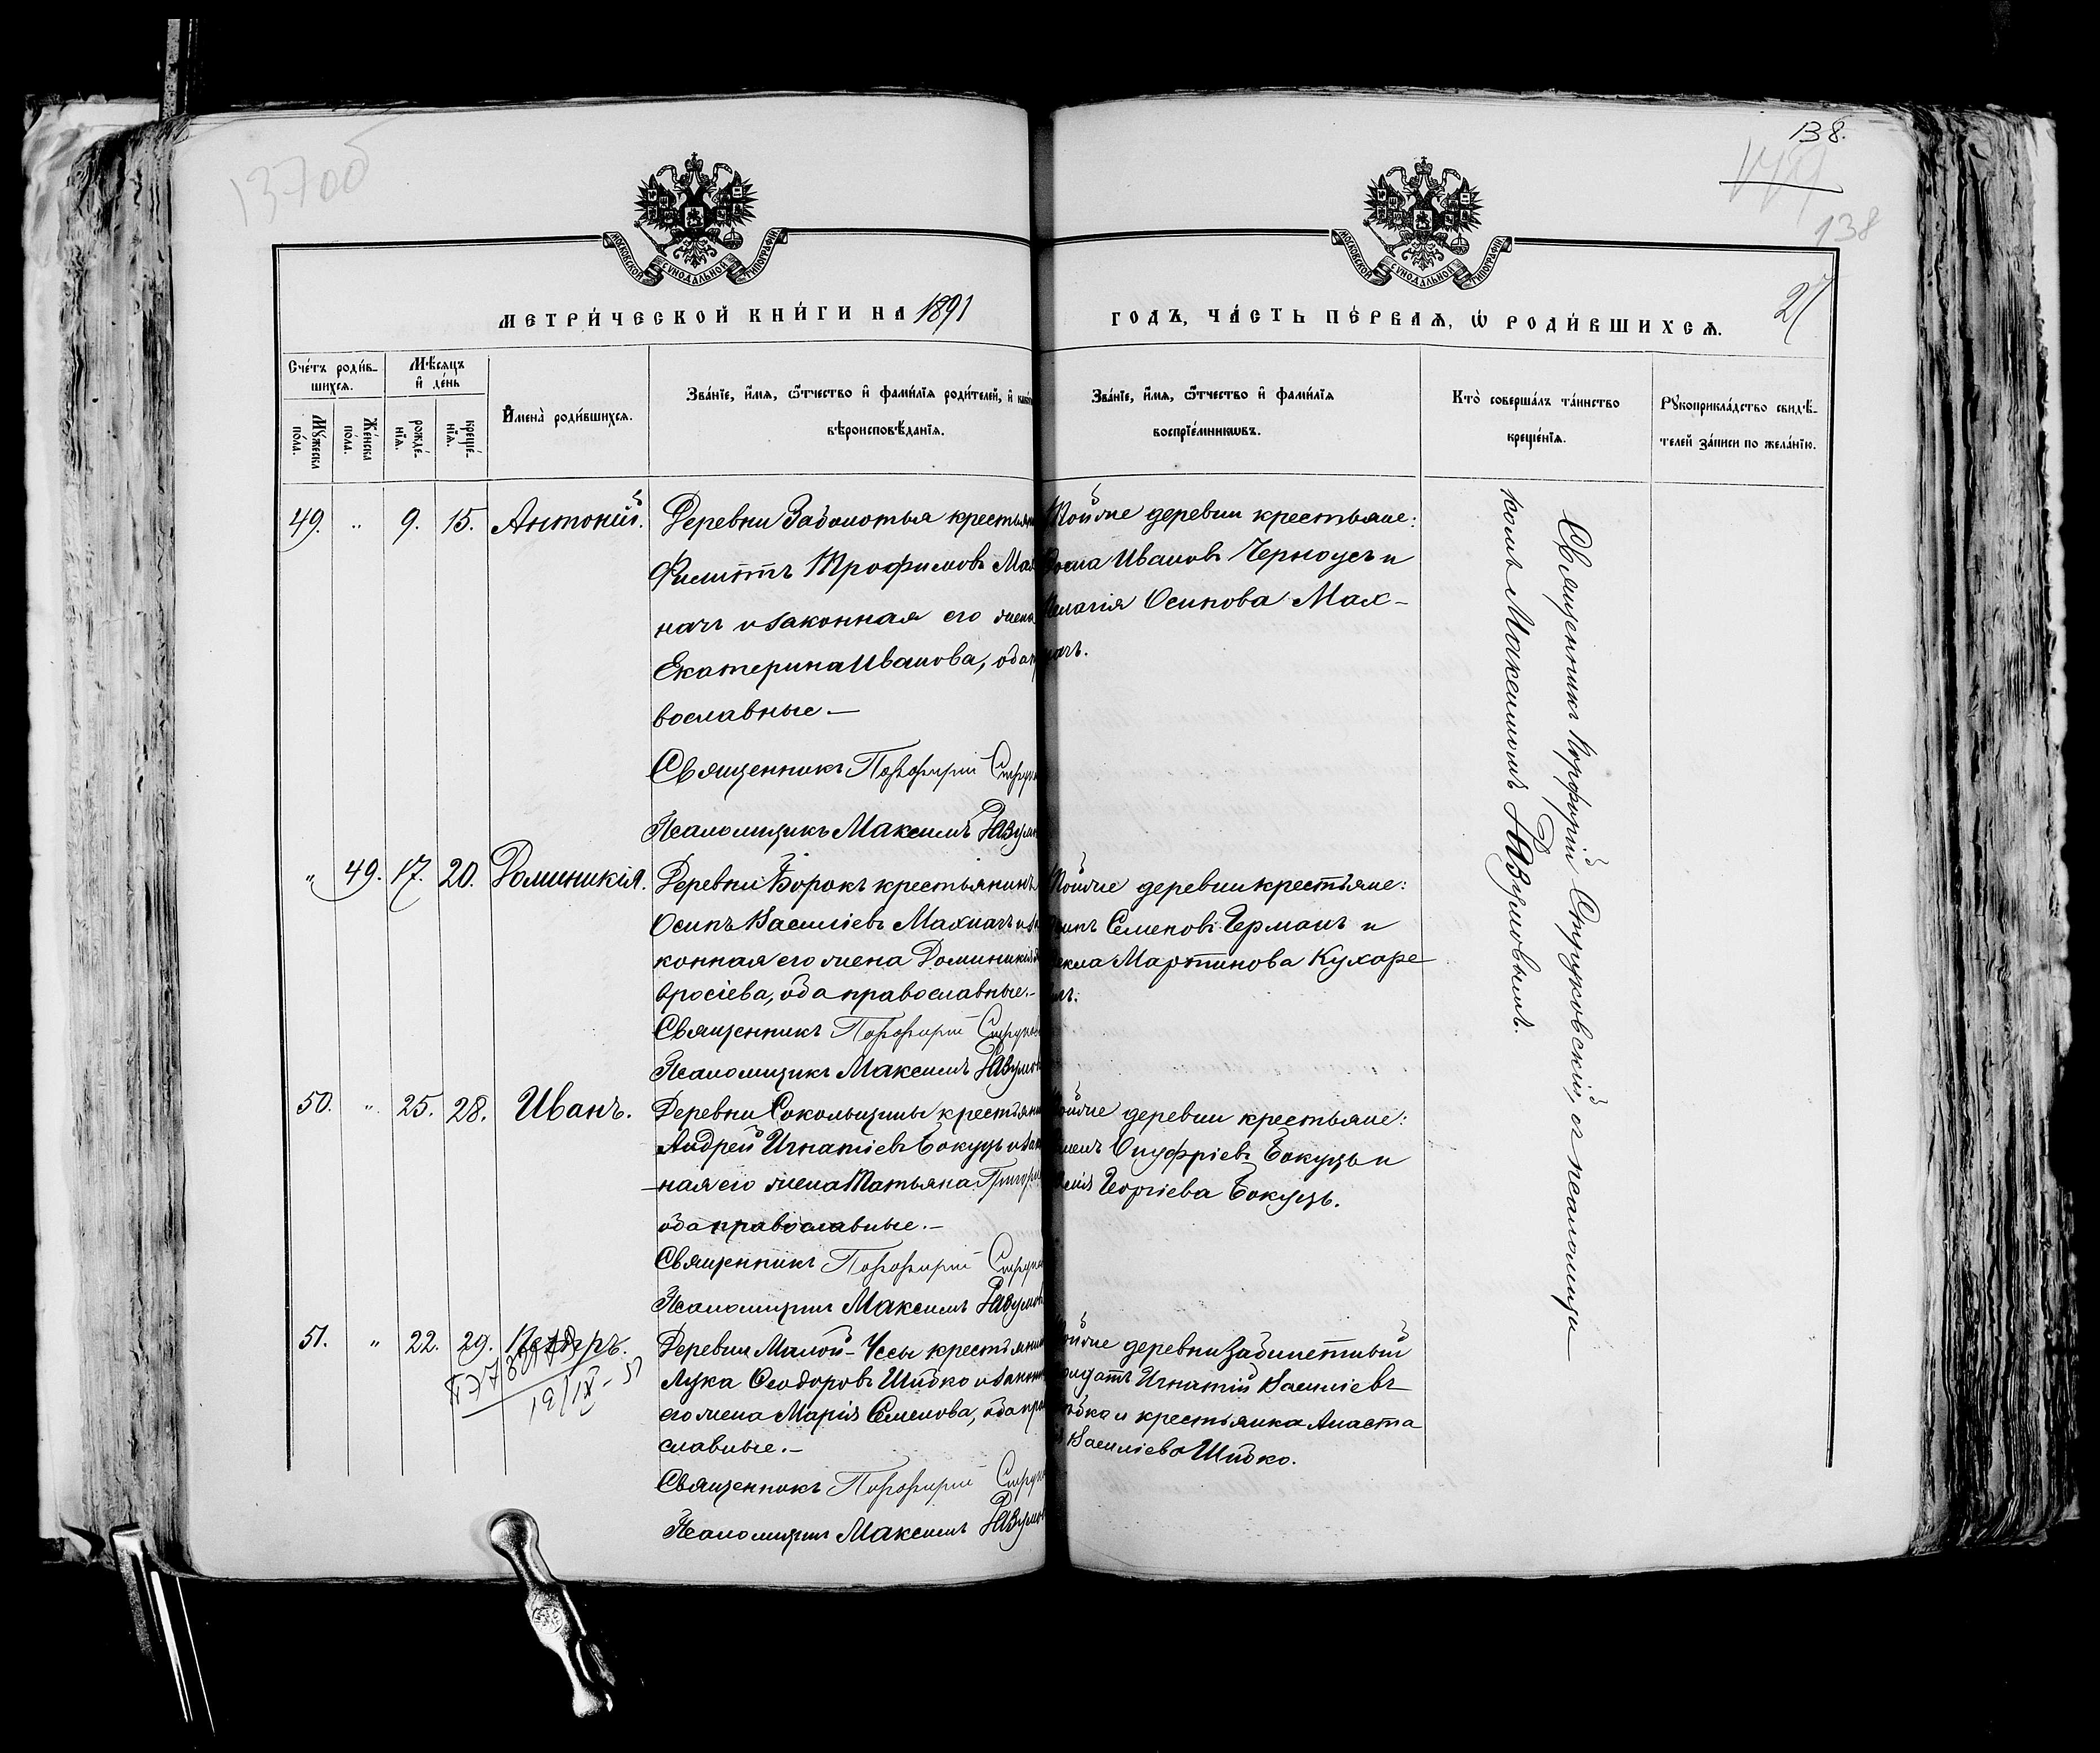 138.
138
МОСКОВСКОЙ СѴНОДАЛЬНОЙ ТИПОГРАФІИ
МОСКОВСКОЙ СѴНОДАЛЬНОЙ ТИПОГРАФІИ
МЕТРИ́ЧЕСКОЙ КНИ́ГИ НА 1891
ГОДЪ, ЧА́СТЬ ПЕ́РВАѦ, Ѡ РОДИ́ВШИХСѦ.
Сче́тъ роди́в-
шихсѧ.
Мꙋ́жеска
по́ла.
Же́нска
по́ла.
Мѣ́сѧцъ
и де́нь
рожде́-
нїѧ.
креще́-
нїѧ.
И҆мена̀ роди́вшихсѧ.
Зва́нїе, и҆́мѧ, ѻ҆́тчество и҆ фами́лїѧ роди́телей, и҆
вѣроисповѣ́данїѧ.
Зва́нїе, и҆́мѧ, ѻ҆́тчество и҆ фами́лїѧ
воспрїе́мникѡвъ.
Кто̀ соверша́лъ та́инство
креще́нїѧ.
Рꙋкоприкла́дство свидѣ́-
телей за́писи по жела́нїю.
49. " 9. 15. Антоній.
Деревни Заболотья крестьян
Филиппъ Трофимовъ Мах
начъ и законная его жена
Екатерина Иванова, оба пр
вославные.—
Священникъ Порфирій Струко
Псаломщикъ Максимъ Разумо
Той же деревни крестьяне:
Ивановъ Черноусъ и
Пелагія Осипова Мах-
начъ.
" 49. 17. 20. Доминикія.
Деревни Борокъ крестьянинъ
Осипъ Василіевъ Махначъ и за
конная его жена Доминикія
вросіева, оба православные.—
Священникъ Порфирій Струко
Псаломщикъ Максимъ Разумов
Той же деревни крестьяне:
Осипъ Семеновъ Германъ и
Текла Мартинова Кухаре
50. " 25. 28. Иванъ.
Деревни Сокольщины крестьянин
Андрей Игнатіевъ Бокуць и закон
ная его жена Татьяна Григорі
оба православные.—
Священникъ Порфирій Струко
Псаломщикъ Максимъ Разумов
Той же деревни крестьяне:
Онуфріевъ Бокуць и
Георгіева Бокуць.
51. " 22. 29. Петръ.
Деревни Малой-Чссы крестьянин
Лука Ѳеодоровъ Шибко и законн
его жена Марія Семенова, оба пра
славные.—
Священникъ Порфирій Струко
Псаломщикъ Максимъ Разумов
Той же деревни
солдатъ Игнатій Василіевъ
Шибко и крестьянка Анаста
Василіева Шибко.
Священникъ Порфирій Струковскій, съ псаломщи-
комъ Максимомъ Разумовымъ.